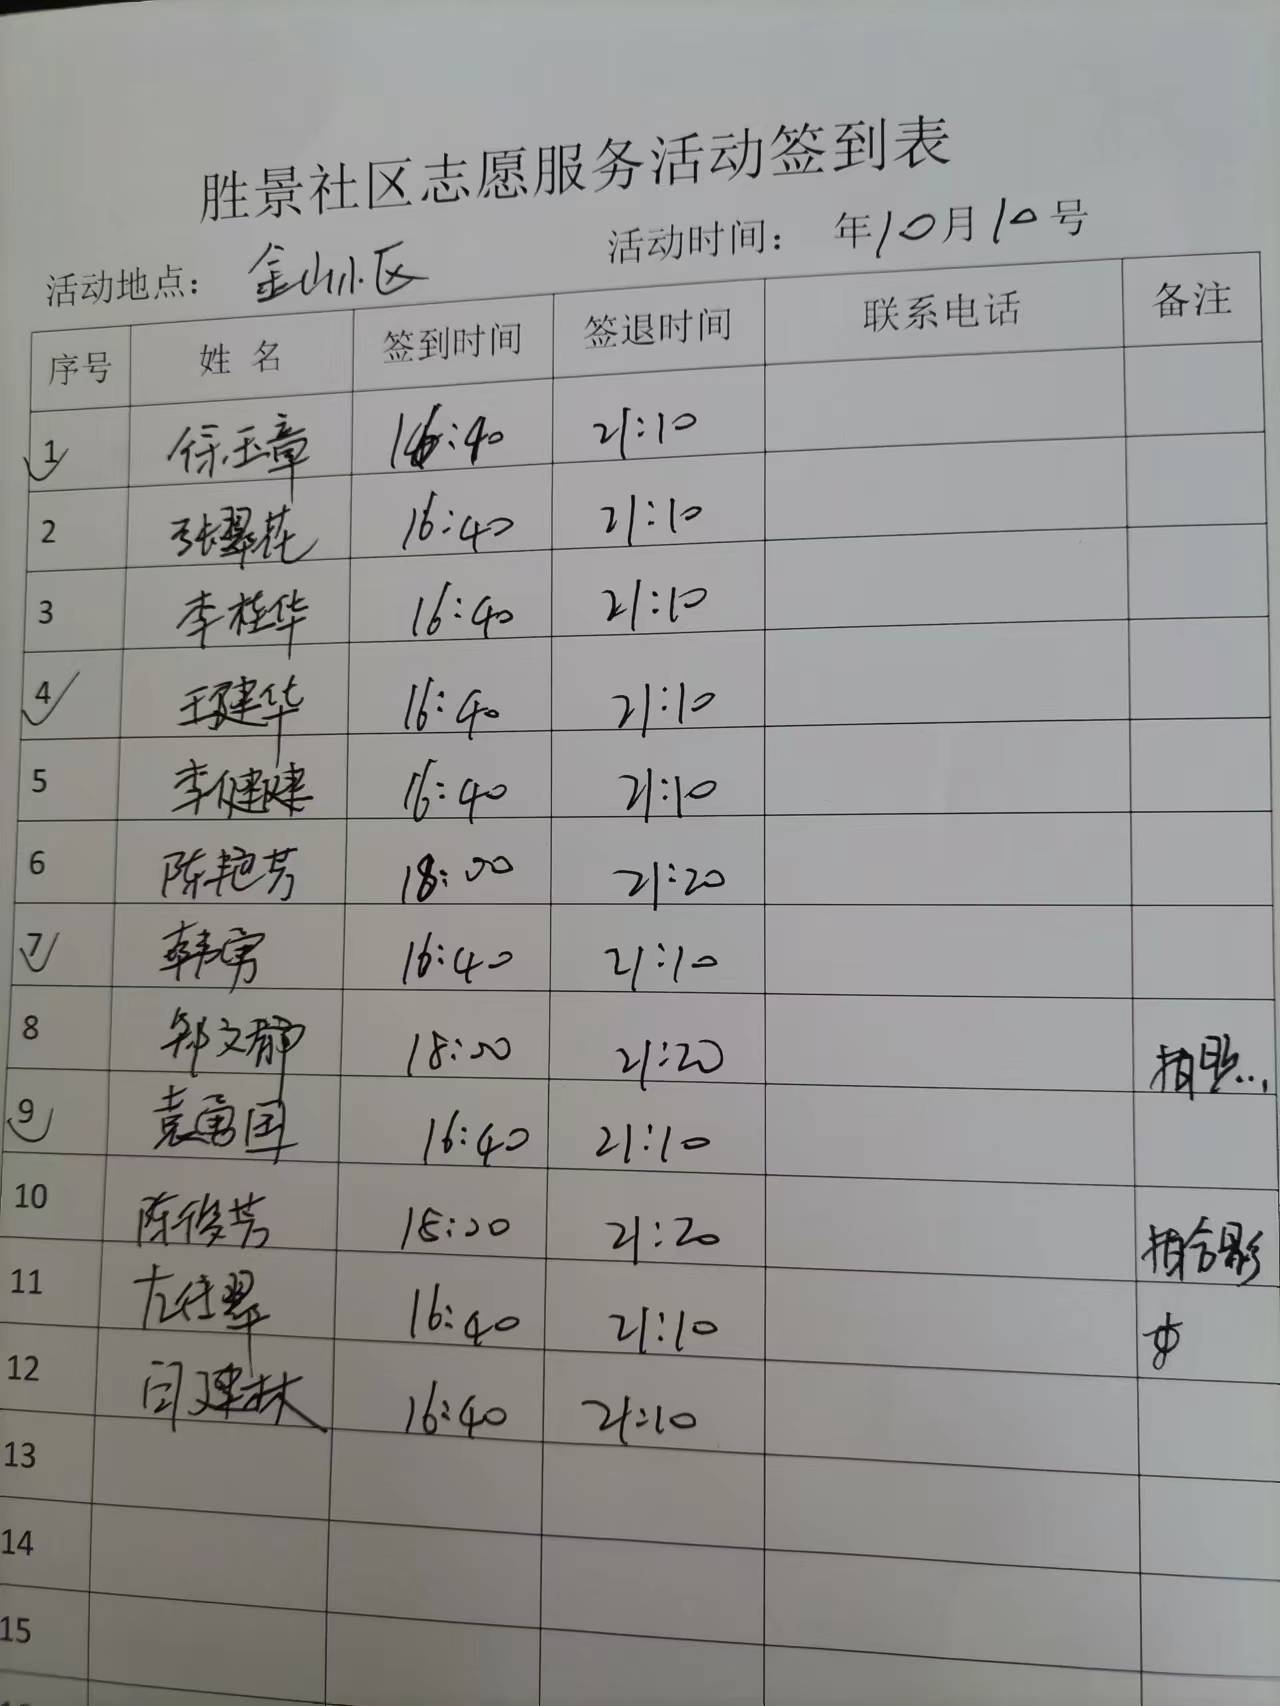 胜景社区志愿服务活动签到表
活动地点： 金山小区 活动时间： 年10月10号
序号 姓 名 签到时间 签退时间 联系电话 备注
1 徐玉章 16:40 21:10
2 张翠花 16:40 21:10
3 李桂华 16:40 21:10
4 王建华 16:40 21:10
5 李健健 16:40 21:10
6 陈艳芳 18:00 21:20
7 韩勇 16:40 21:10
8 郑文静 18:00 21:20 拍照...
9 袁勇国 16:40 21:10
10 陈俊芳 18:20 21:20 拍合影
11 左仕翠 16:40 21:10
12 闫建林 16:40 21:10
13
14
15